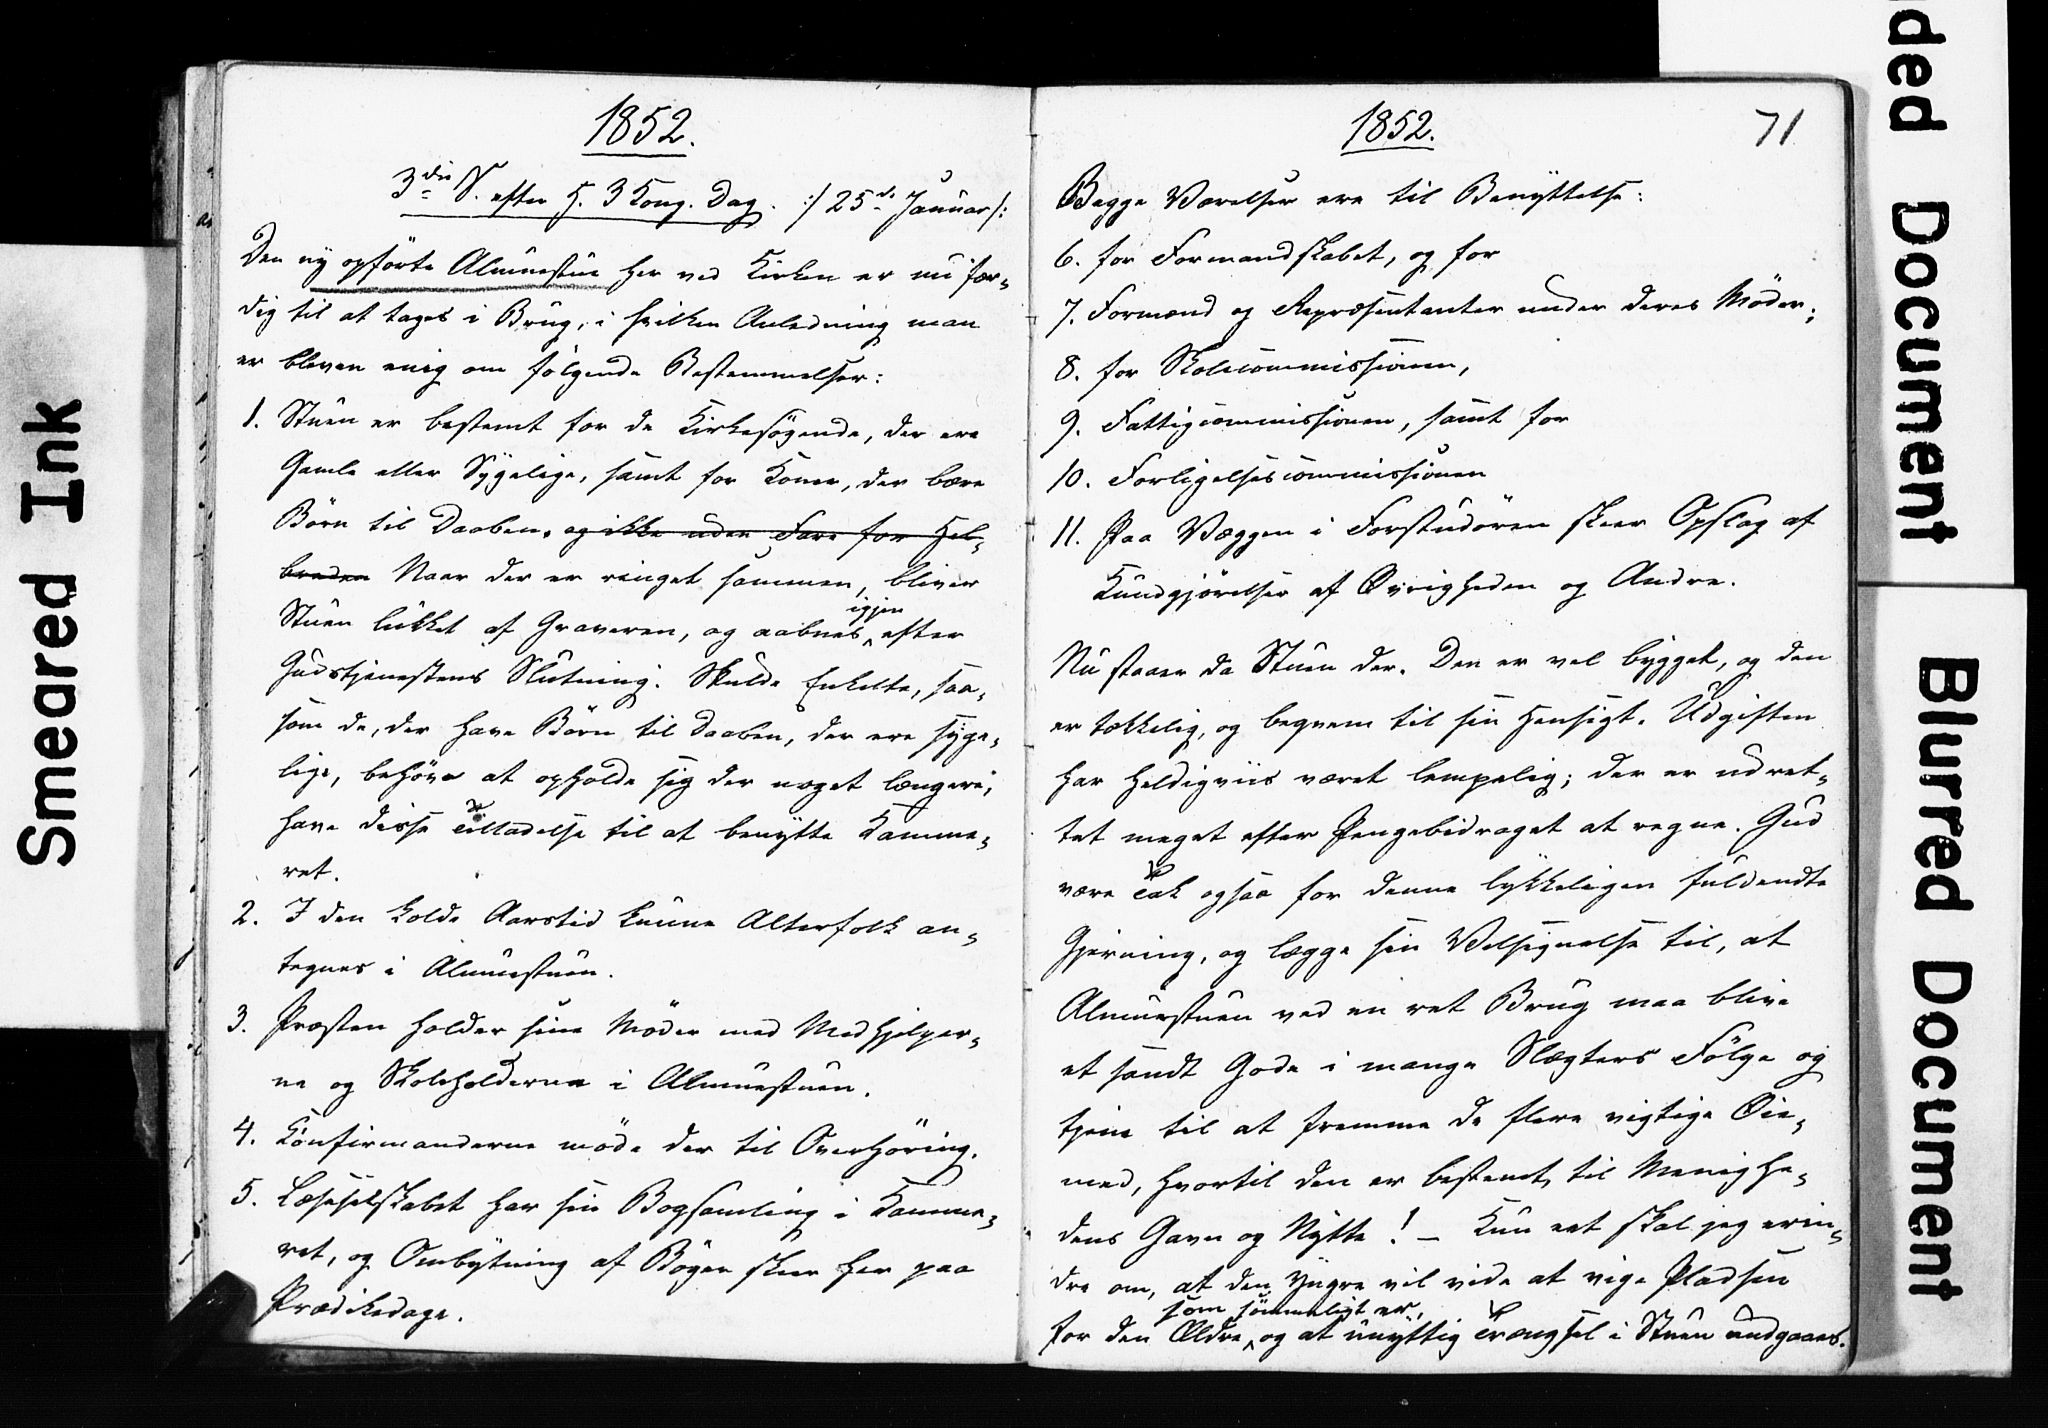 1852.
3die S. efter H. 3 Kong. Dag. :/ 25de Januar/:
Den ny opførte Almuestue her ved Kirken er nu fær-
dig til at tages i Brug, i hvilken Anledning man
er bleven enig om følgende Bestemmelser:
1. Stuen er bestemt for de Kirkesøgende, der ere
Gamle eller Sygelige, samt for Koner, der bære
Børn til Daaben. og ikke uden Fare for Hel-
breden Naar der er ringet sammen, bliver
Stuen lukket af Graveren, og aabnes igjen efter
Gudstjenestens Slutning. Skulde Enkelte, saa-
som de, der have Børn til Daaben, der ere syge-
lige, behøve at opholde sig der noget længere,
have disse Tilladelse til at benytte Kamme-
ret.
2. I den kolde Aarstid kunne Alterfolk an-
tegnes i Almuestuen.
3. Præsten holder sine Møder med Medhjelper-
ne og Skoleholderne i Almuestuen.
4. Konfirmanderne møde der til Overhøring.
5. Læseselskabet har sin Bogsamling i Kamme-
ret, og Ombytning af Bøger skeer her paa
Prædikedage.
1852.
71
Begge Værelser ere til Benyttelse:
6. for Formandskabet, og for
7. Formænd og Repræsentanter under deres Møder;
8. for Skolecommissionen,
9. Fattigcommissionen, samt for
10. Forligelsescommissionen
11. Paa Væggen i Forstudøren skeer Opslag af
Kundgjørelser af Øvrigheden og Andre.
Nu staaer da Stuen der. Den er vel bygget, og den
er tækkelig, og beqvem til sin Hensigt. Udgiften
har heldigviis været lempelig; der er udret-
tet meget efter Pengebidraget at regne. Gud
være Tak ogsaa for denne lykkeligen fuldendte
Gjerning, og lægge sin Velsignelse til, at
Almuestuen ved en ret Brug maa blive
et sandt Gode i mange Slægters Følge og
tjene til at fremme de flere vigtige Øie-
med, hvortil den er bestemt, til Menighe-
dens Gavn og Nytte! — Kun eet skal jeg erin-
dre om, at den Yngre vil vide at vige Pladsen
for den Ældre, som sømmeligt er, og at unyttig Trængsel i Stuen undgaaes.
Smeared Ink
ded Document
Blurred Document